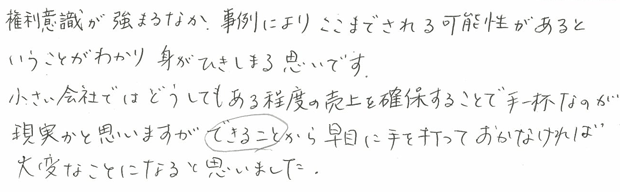 権利意識が強まるなか、事例によりここまでされる可能性があると
いうことがわかり身がひきしまる思いです。
小さい会社ではどうしてもある程度の売上を確保することで手一杯なのが
現実かと思いますができることから早目に手を打っておかなければ
大変なことになると思いました。